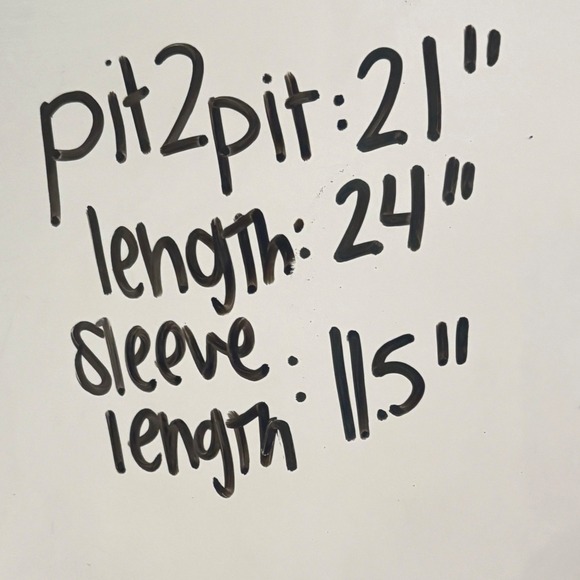 pit2pit: 21"
length: 24"
sleeve
length: 11.5"